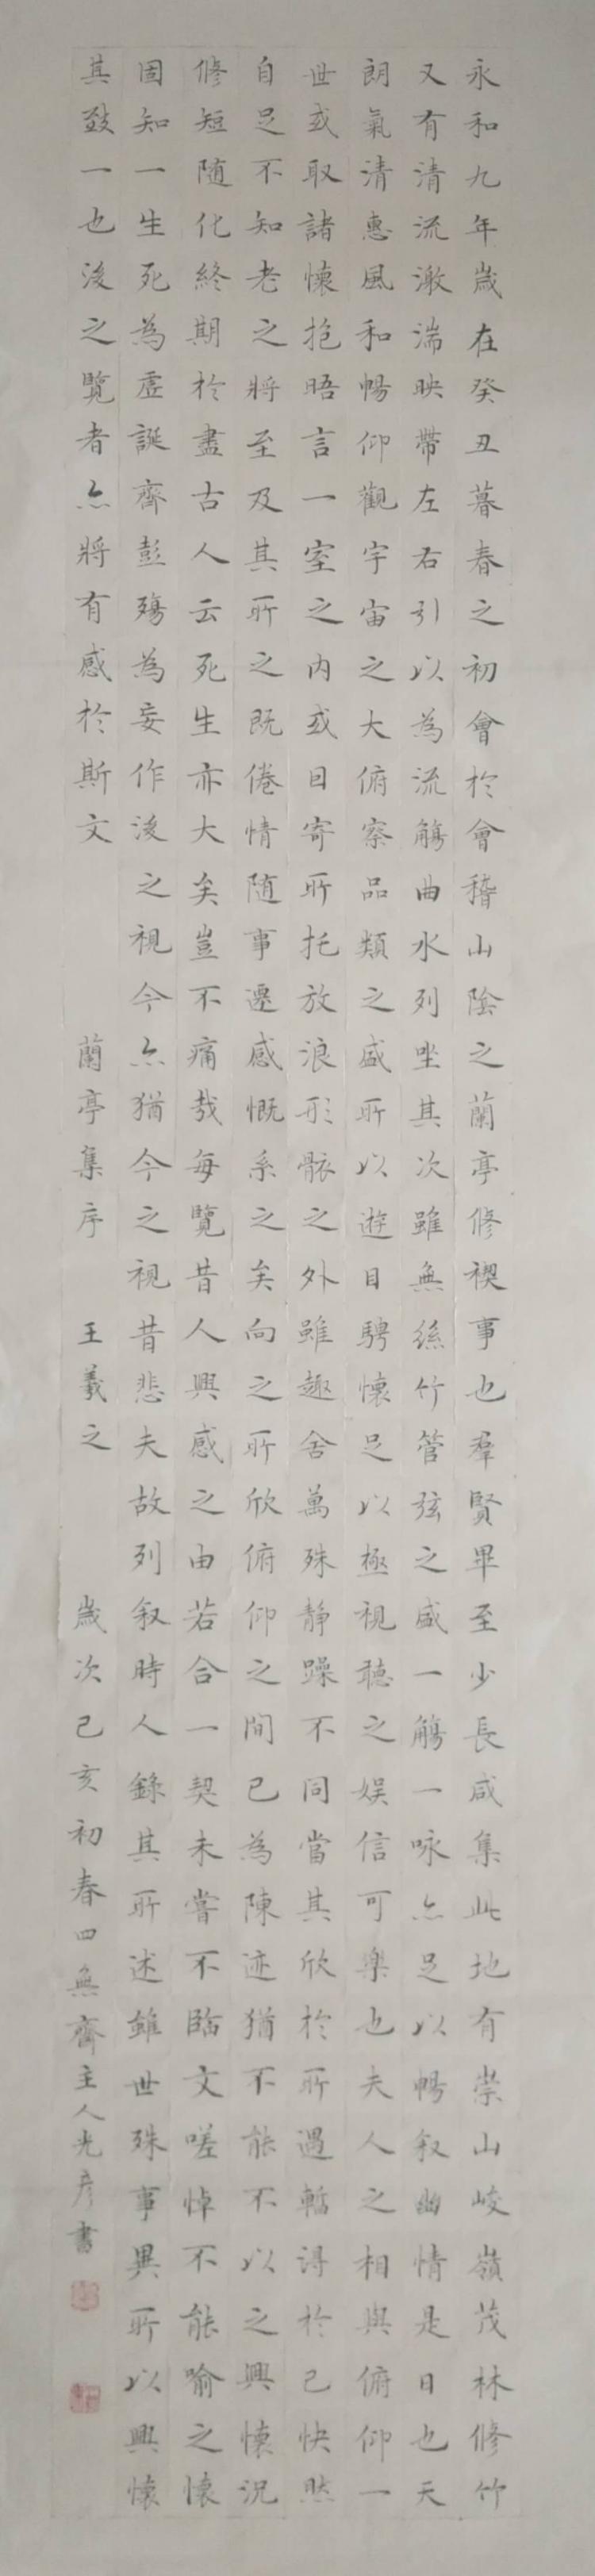 永和九年歲在癸丑暮春之初會於會稽山陰之蘭亭修禊事也羣賢畢至少長咸集此地有崇山峻嶺茂林修竹
又有清流激湍映帶左右引以為流觴曲水列坐其次雖無絲竹管弦之盛一觴一咏亦足以暢叙幽情是日也天
朗氣清惠風和暢仰觀宇宙之大俯察品類之盛所以遊目騁懷足以極視聽之娱信可樂也夫人之相與俯仰一
世或取諸懷抱晤言一室之内或因寄所托放浪形骸之外雖趣舍萬殊静躁不同當其欣於所遇暫得於己快然
自足不知老之將至及其所之既倦情随事遷感慨系之矣向之所欣俯仰之間已為陳迹猶不能不以之興懷況
修短随化終期於盡古人云死生亦大矣豈不痛哉每覽昔人興感之由若合一契未嘗不臨文嗟悼不能喻之懷
固知一生死為虚誕齊彭殤為妄作後之視今亦猶今之視昔悲夫故列叙時人錄其所述雖世殊事異所以興懷
其致一也後之覽者亦將有感於斯文 蘭亭集序 王羲之 歲次己亥初春四無齋主人光彦書